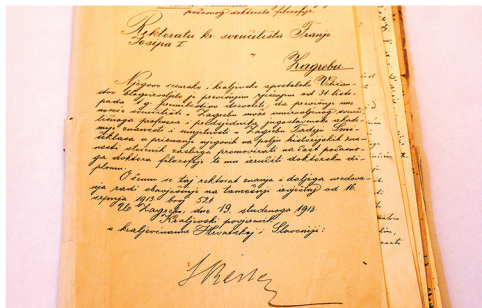 počasnog doktorata filosofije.
Rektoratu kr. sveučilišta Franje
Josipa I
Zagrebu
Njegovo cesarsko i kraljevsko apostolsko Veličan-
stvo blagoizvoljelo je previšnjim rješenjem od 31 listo-
pada t. g. premilostivo dozvoliti, da
sveučilište u Zagrebu može umirovljenog sveuči-
lišnoga profesora i predsjednika jugoslavenske akade-
mije znanosti i umjetnosti u Zagrebu Tadiju Smi-
čiklasa u priznanje njegovih na polju historijskih zna-
nosti stečenih zasluga promovirati na čast počasno-
ga doktora filosofije te mu izručiti doktorsku di-
plomu.
O čemu se taj rektorat znanja i daljega uredova-
nja radi obavješćuje na tamošnji izvještaj od 16.
srpnja 1913. broj 521
U Zagrebu, dne 19. studenoga 1913.
Kraljevski povjerenik
u kraljevinama Hrvatskoj i Slavoniji: